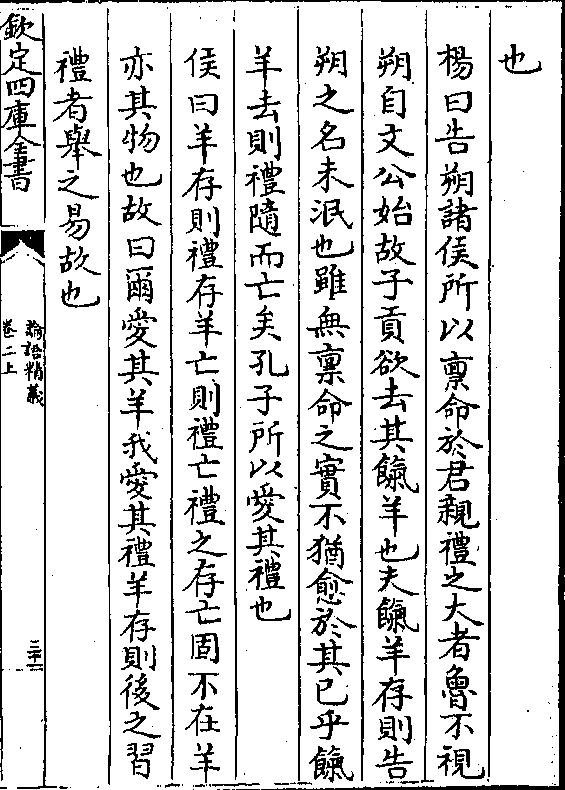 也
楊曰告朔諸侯所以稟命於君親禮之大者魯不視
朔自文公始故子貢欲去其餼羊也夫餼羊存則告
朔之名未泯也雖無稟命之實不猶愈於其已乎餼
羊去則禮隨而亡矣孔子所以愛其禮也
侯曰羊存則禮存羊亡則禮亡禮之存亡固不在羊
亦其物也故曰爾愛其羊我愛其禮羊存則後之習
禮者舉之易故也
欽定四庫全書
論語精義
卷二上
二十一